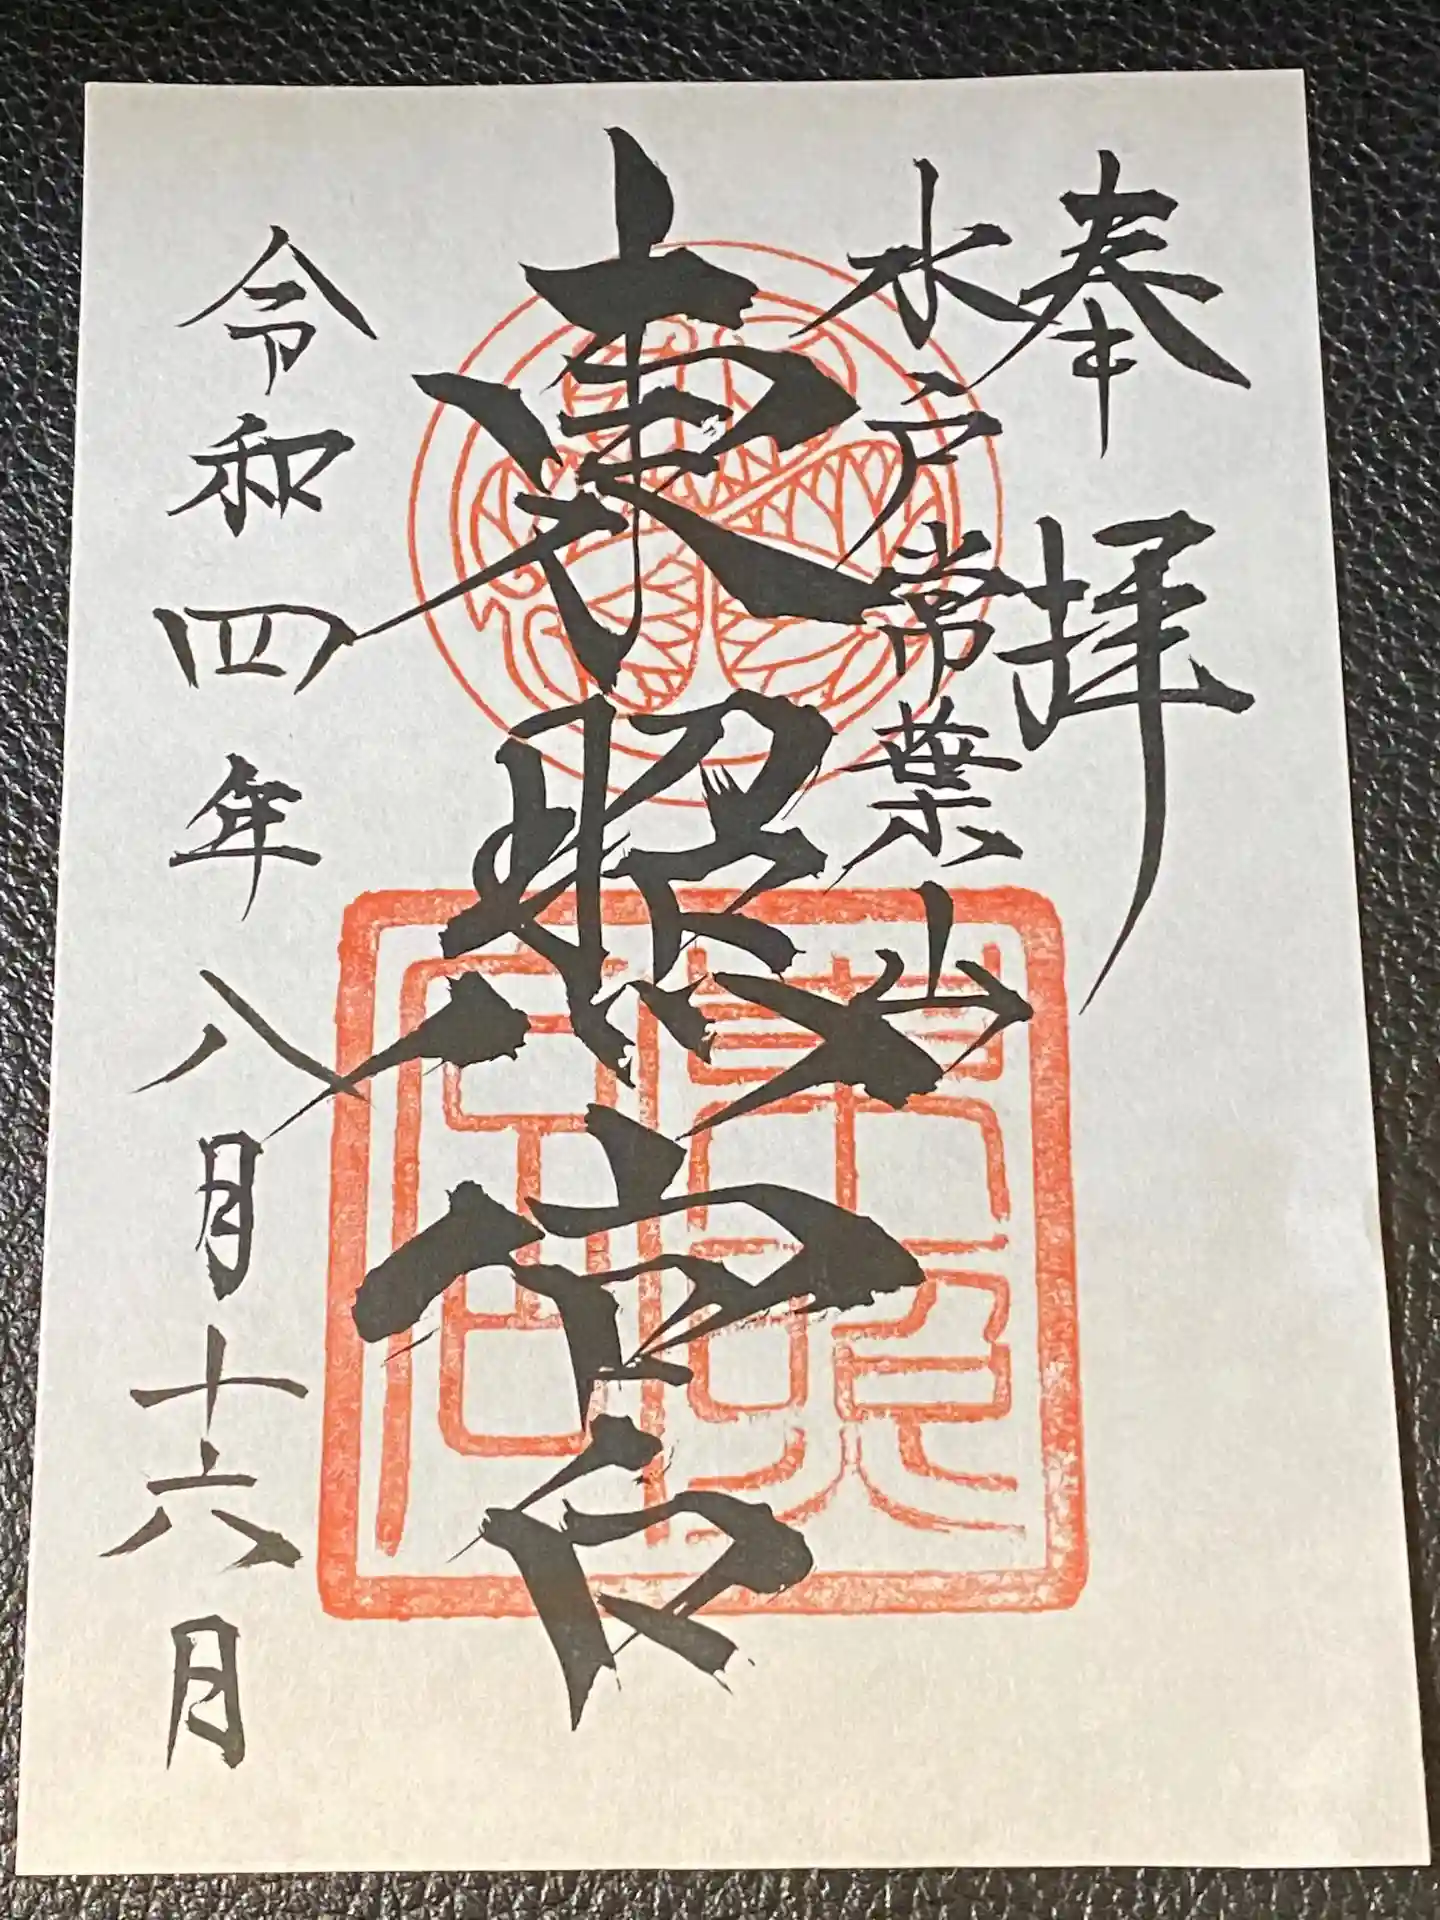 奉拝
水戸常葉山
東照宮
令和四年八月十六日